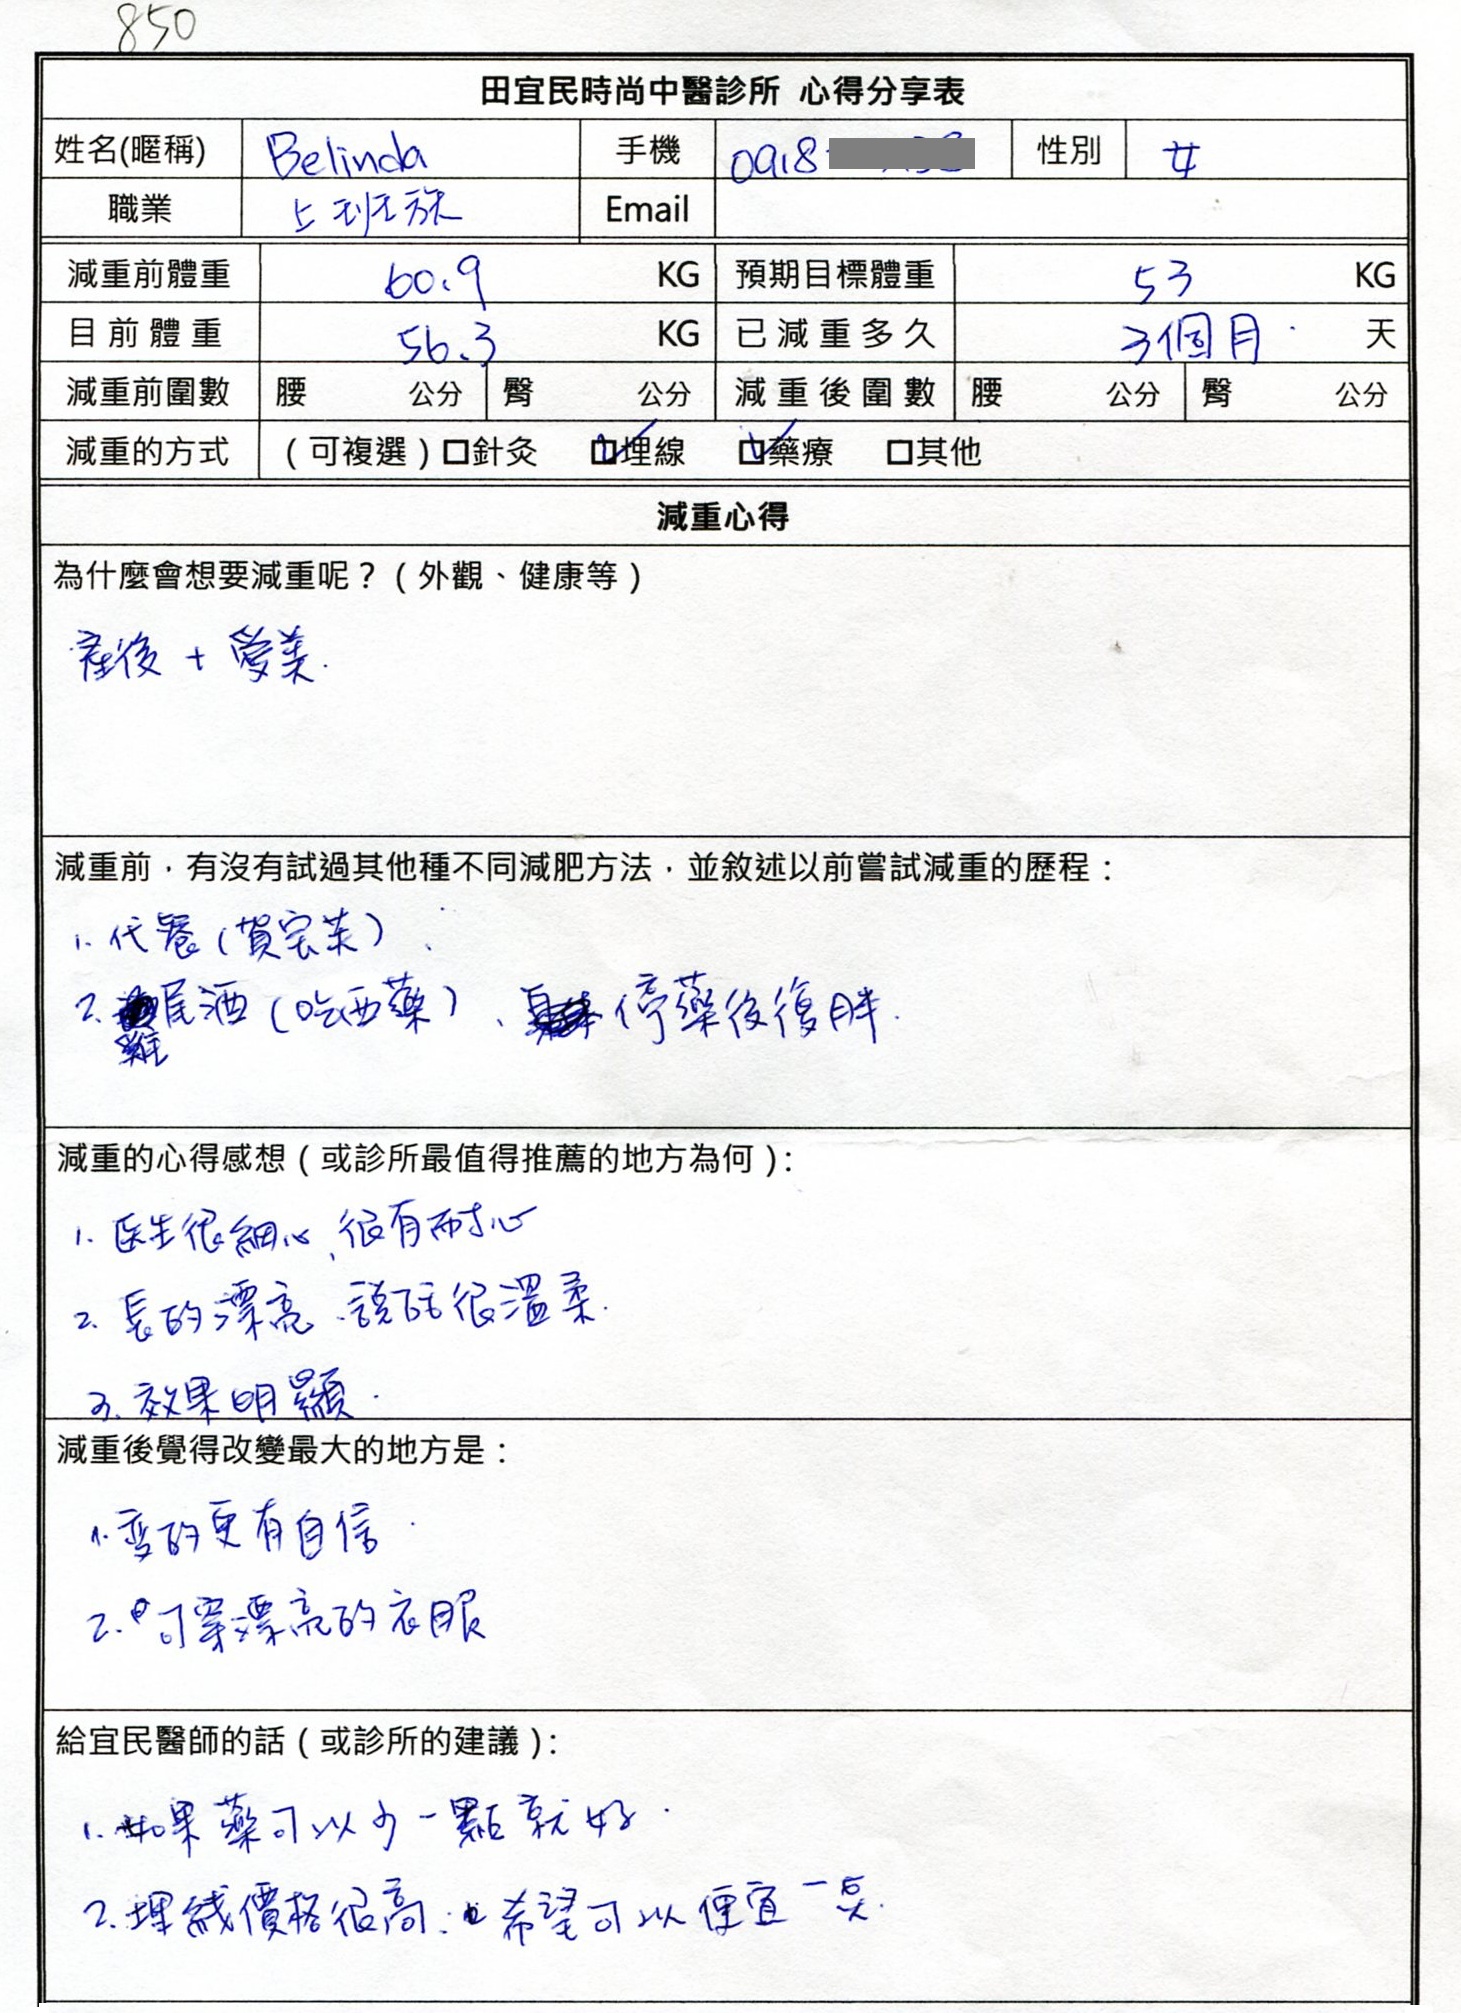 850
田宜民時尚中醫診所 心得分享表
姓名(暱稱) Belinda 手機 0918 性別 女
職業 上班族 Email
減重前體重 60.9 KG 預期目標體重 53 KG
目前體重 56.3 KG 已減重多久 3個月 天
減重前圍數 腰 公分 臀 公分 減重後圍數 腰 公分 臀 公分
減重的方式 (可複選) □針灸 ☑埋線 ☑藥療 □其他
減重心得
為什麼會想要減重呢？(外觀、健康等)
產後 + 愛美.
減重前，有沒有試過其他種不同減肥方法，並敘述以前嘗試減重的歷程：
1. 代餐(賀宝芙)
2. 雞尾酒(吃西藥)、停藥後復胖.
減重的心得感想(或診所最值得推薦的地方為何)：
1. 医生很細心、很有耐心
2. 長的漂亮、說話很溫柔.
3. 效果明顯.
減重後覺得改變最大的地方是：
1. 变的更有自信.
2. 可穿漂亮的衣服
給宜民醫師的話(或診所的建議)：
1. 如果藥可以少一點就好.
2. 埋綫價格很高. 希望可以便宜一点.